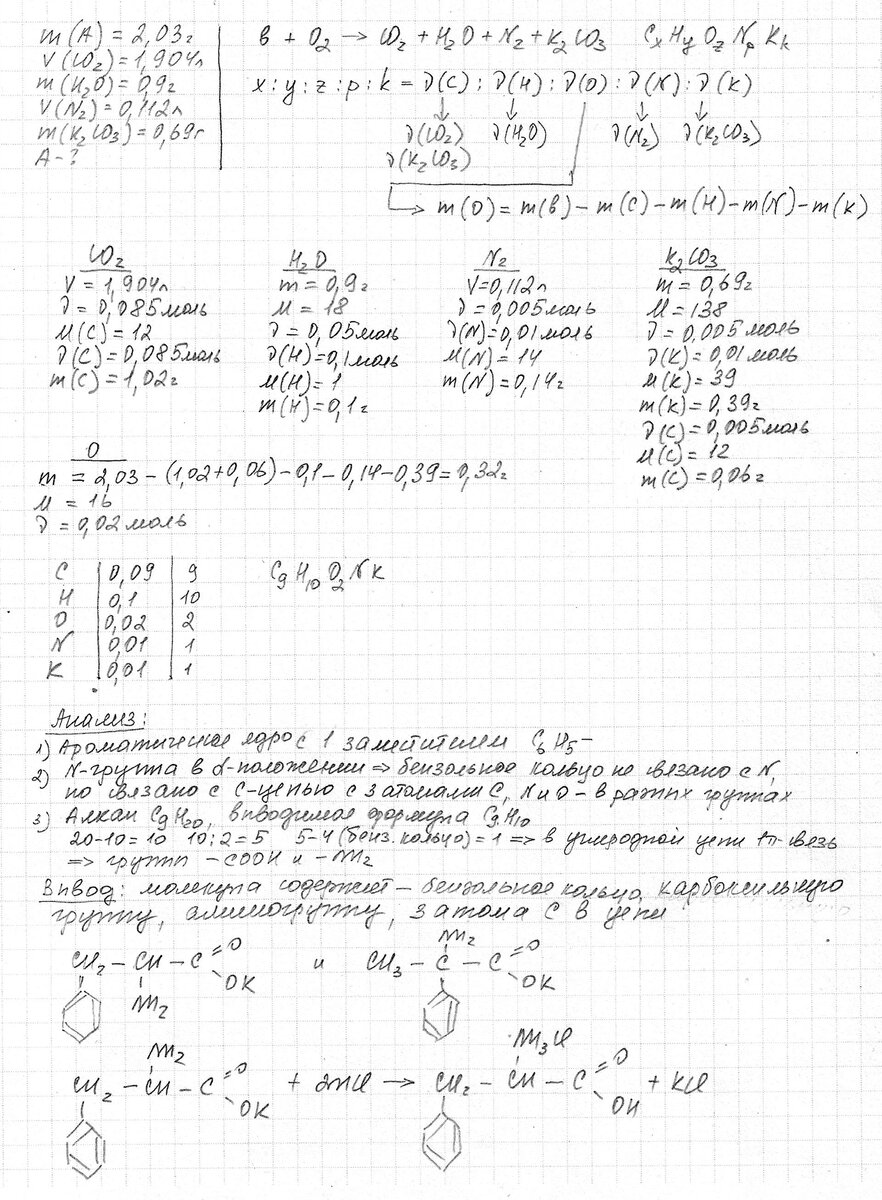 m(A) = 2,03г
V(CO2) = 1,904л
m(H2O) = 0,9г
V(N2) = 0,112л
m(K2CO3) = 0,69г
A - ?
в + O2 → CO2 + H2O + N2 + K2CO3 CxHyOzNpKk
x : y : z : p : k = ν(C) : ν(H) : ν(O) : ν(N) : ν(K)
ν(CO2) ν(H2O) ν(N2) ν(K2CO3)
ν(K2CO3)
m(O) = m(в) - m(C) - m(H) - m(N) - m(K)
CO2
V = 1,904л
ν = 0,085моль
M(C) = 12
ν(C) = 0,085моль
m(C) = 1,02г
H2O
m = 0,9г
M = 18
ν = 0,05моль
ν(H) = 0,1моль
M(H) = 1
m(H) = 0,1г
N2
V = 0,112л
ν = 0,005моль
ν(N) = 0,01моль
M(N) = 14
m(N) = 0,14г
K2CO3
m = 0,69г
M = 138
ν = 0,005моль
ν(K) = 0,01моль
M(K) = 39
m(K) = 0,39г
ν(C) = 0,005моль
M(C) = 12
m(C) = 0,06г
O
m = 2,03 - (1,02 + 0,06) - 0,1 - 0,14 - 0,39 = 0,32г
M = 16
ν = 0,02моль
C | 0,09 | 9 C9H10O2NK
H | 0,1 | 10
O | 0,02 | 2
N | 0,01 | 1
K | 0,01 | 1
Анализ:
1) Ароматическое ядро с 1 заместителем C6H5-
2) N-группа в α-положении ⇒ бензольное кольцо не связано с N,
но связано с C-цепью с 3 атомами C, N и O - в разных группах
3) Алкан C9H20, вводимая формула C9H10
20-10=10 10:2=5 5-4 (бенз. кольцо) = 1 ⇒ в углеродной цепи 1π-связь
⇒ групп -COOH и -NH2
Вывод: молекула содержит - бензольное кольцо, карбоксильную
группу, аминогруппу, 3 атома C в цепи
NH2
CH2 - CH - C =O OK и CH3 - C - C =O OK
NH2
NH2 NH3Cl
CH2 - CH - C =O OK + 2HCl → CH2 - CH - C =O OH + KCl